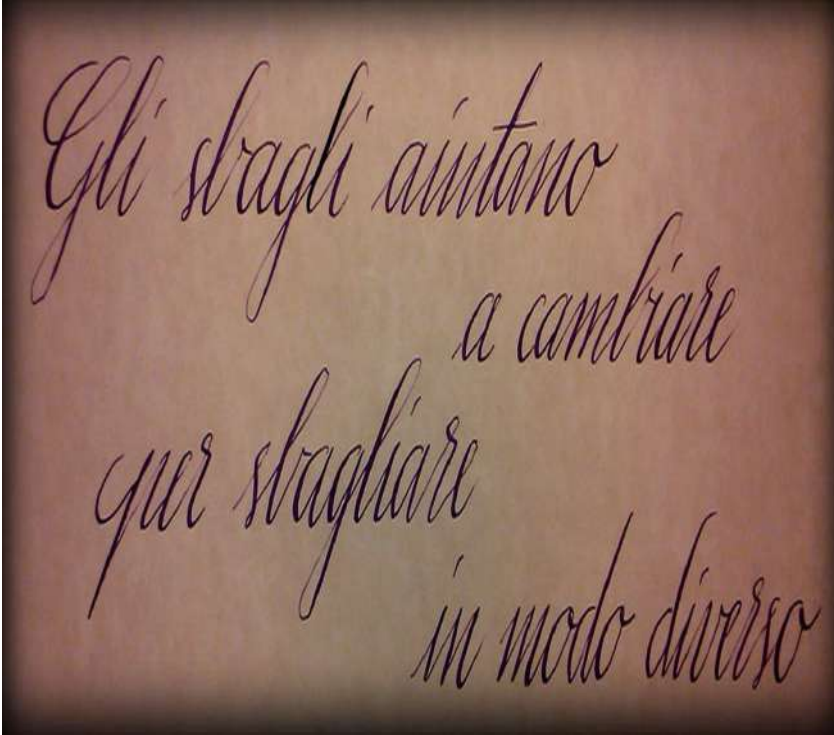 Gli sbagli aiutano
a cambiare
per sbagliare
in modo diverso